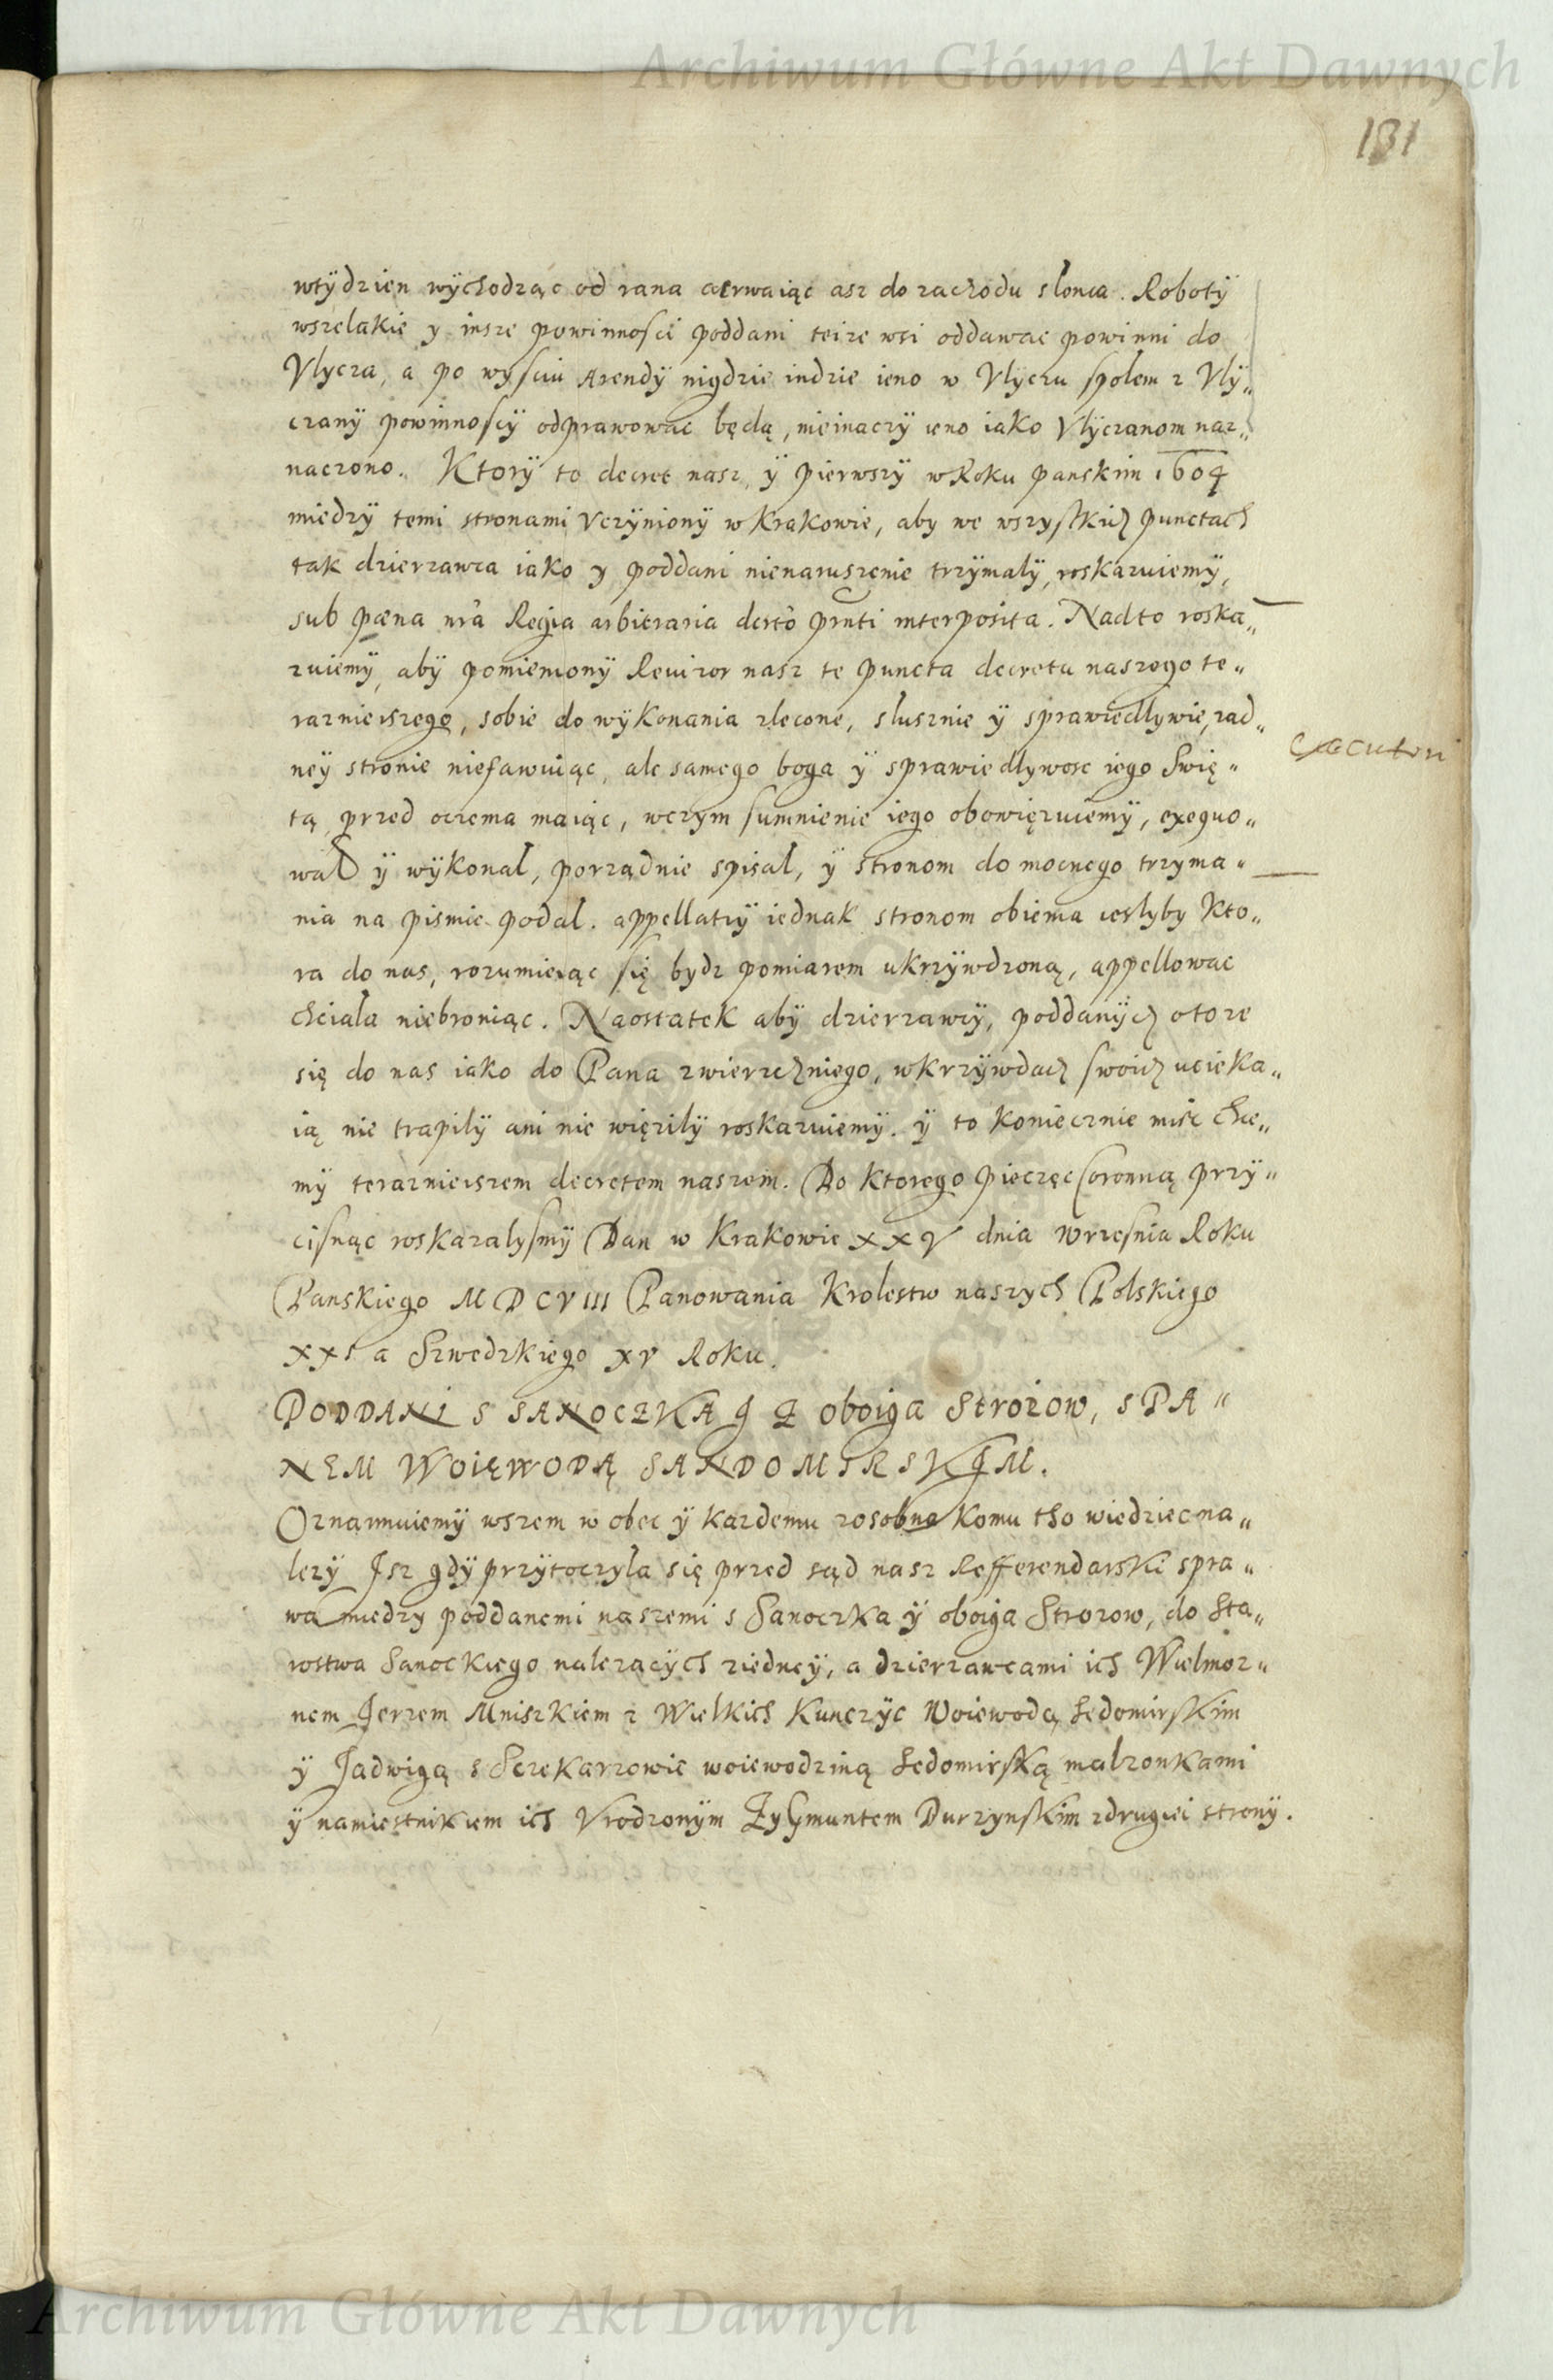 Archiwum Główne Akt Dawnych
131
wtÿdzien wÿchodząc od rana aerwaiąc asz do zachodu slonca. Robotÿ
wszelakie y insze powinnosci poddani teize wsi oddawac powinni do
Vlycza, a po wysciu Arendÿ nigdzie indzie ieno w Vlyczu spolem z Vly„
czany powinnoscy odprawowac będą, nieinaczÿ ieno iako Vlÿczanom naz„
naczono. Ktorÿ to decret nasz, ÿ pierwszÿ w Roku panskim 1604
miedzÿ temi stronami Vczÿnionÿ w Krakowie, aby we wszystkich punctach
tak dzierzawca iako y poddani nienaruszenie trzÿmalÿ, roskazuiemÿ,
sub pæna nrã Regia arbitraria dcrto prnti interposita. Nadto roska„
zuiemÿ, abÿ pomienionÿ Reuizor nasz te puncta decretu naszego te„
raznieiszego, sobie do wÿkonania zlecone, slusznie ÿ sprawiedlywie, zad„
neÿ stronie niefawuiąc, ale samego boga ÿ sprawiedlywosc iego Swię„
tą przed oczema maiąc, wczym sumnienie iego obowięzuiemÿ, exequo„
wal ÿ wÿkonal, porządnie spisal, ÿ stronom do mocnego trzyma„
nia na pismie podal. appellatiÿ iednak stronom obiema ieslyby kto„
ra do nas, rozumieiąc się bydz pomiarem ukrzÿwdzoną, appellowac
chciala niebroniąc. Naostatek abÿ dzierzawcÿ, poddanÿch otoze
się do nas iako do Pana zwierzchniego, wkrzÿwdach swoich ucieka„
ią nie trapilÿ ani nie więzilÿ roskazuiemÿ. ÿ to koniecznie miec chce„
mÿ teraznieiszem decretem naszem. Do ktorego pieczęc coronną przÿ„
cisnąc roskazalysmÿ Dan w Krakowie XXV dnia Wrzesnia Roku
Panskiego MDCVIII Panowania Krolestw naszych Polskiego
XXI a Szwedzkiego XV Roku.
PODDANI S SANOCZKA Y Z oboiga Strozow, S PA„
NEM WOIĘWODĄ SANDOMIRSKIM.
Oznaimuiemÿ wszem w obec ÿ kazdemu zosobna komu tho wiedziec na„
lezÿ Isz gdÿ przÿtoczyla się przed sąd nasz Refferendarski spra„
wa miedzy poddanemi naszemi s Sanoczka ÿ oboiga Strozow, do Sta„
rostwa Sanockiego nalezacÿch ziedneÿ, a dzierzawcami ich Wielmoz„
nem Jerzem Mniszkiem z Wielkich Kunczÿc Woiewodą Sedomirskim
ÿ Jadwigą s Sczekarzowic woiewodziną Sedomirską malzonkami
ÿ namiestnikiem ich Vrodzonÿm Zygmuntem Durzynskim zdrugiei stronÿ.
executori
Archiwum Główne Akt Dawnych